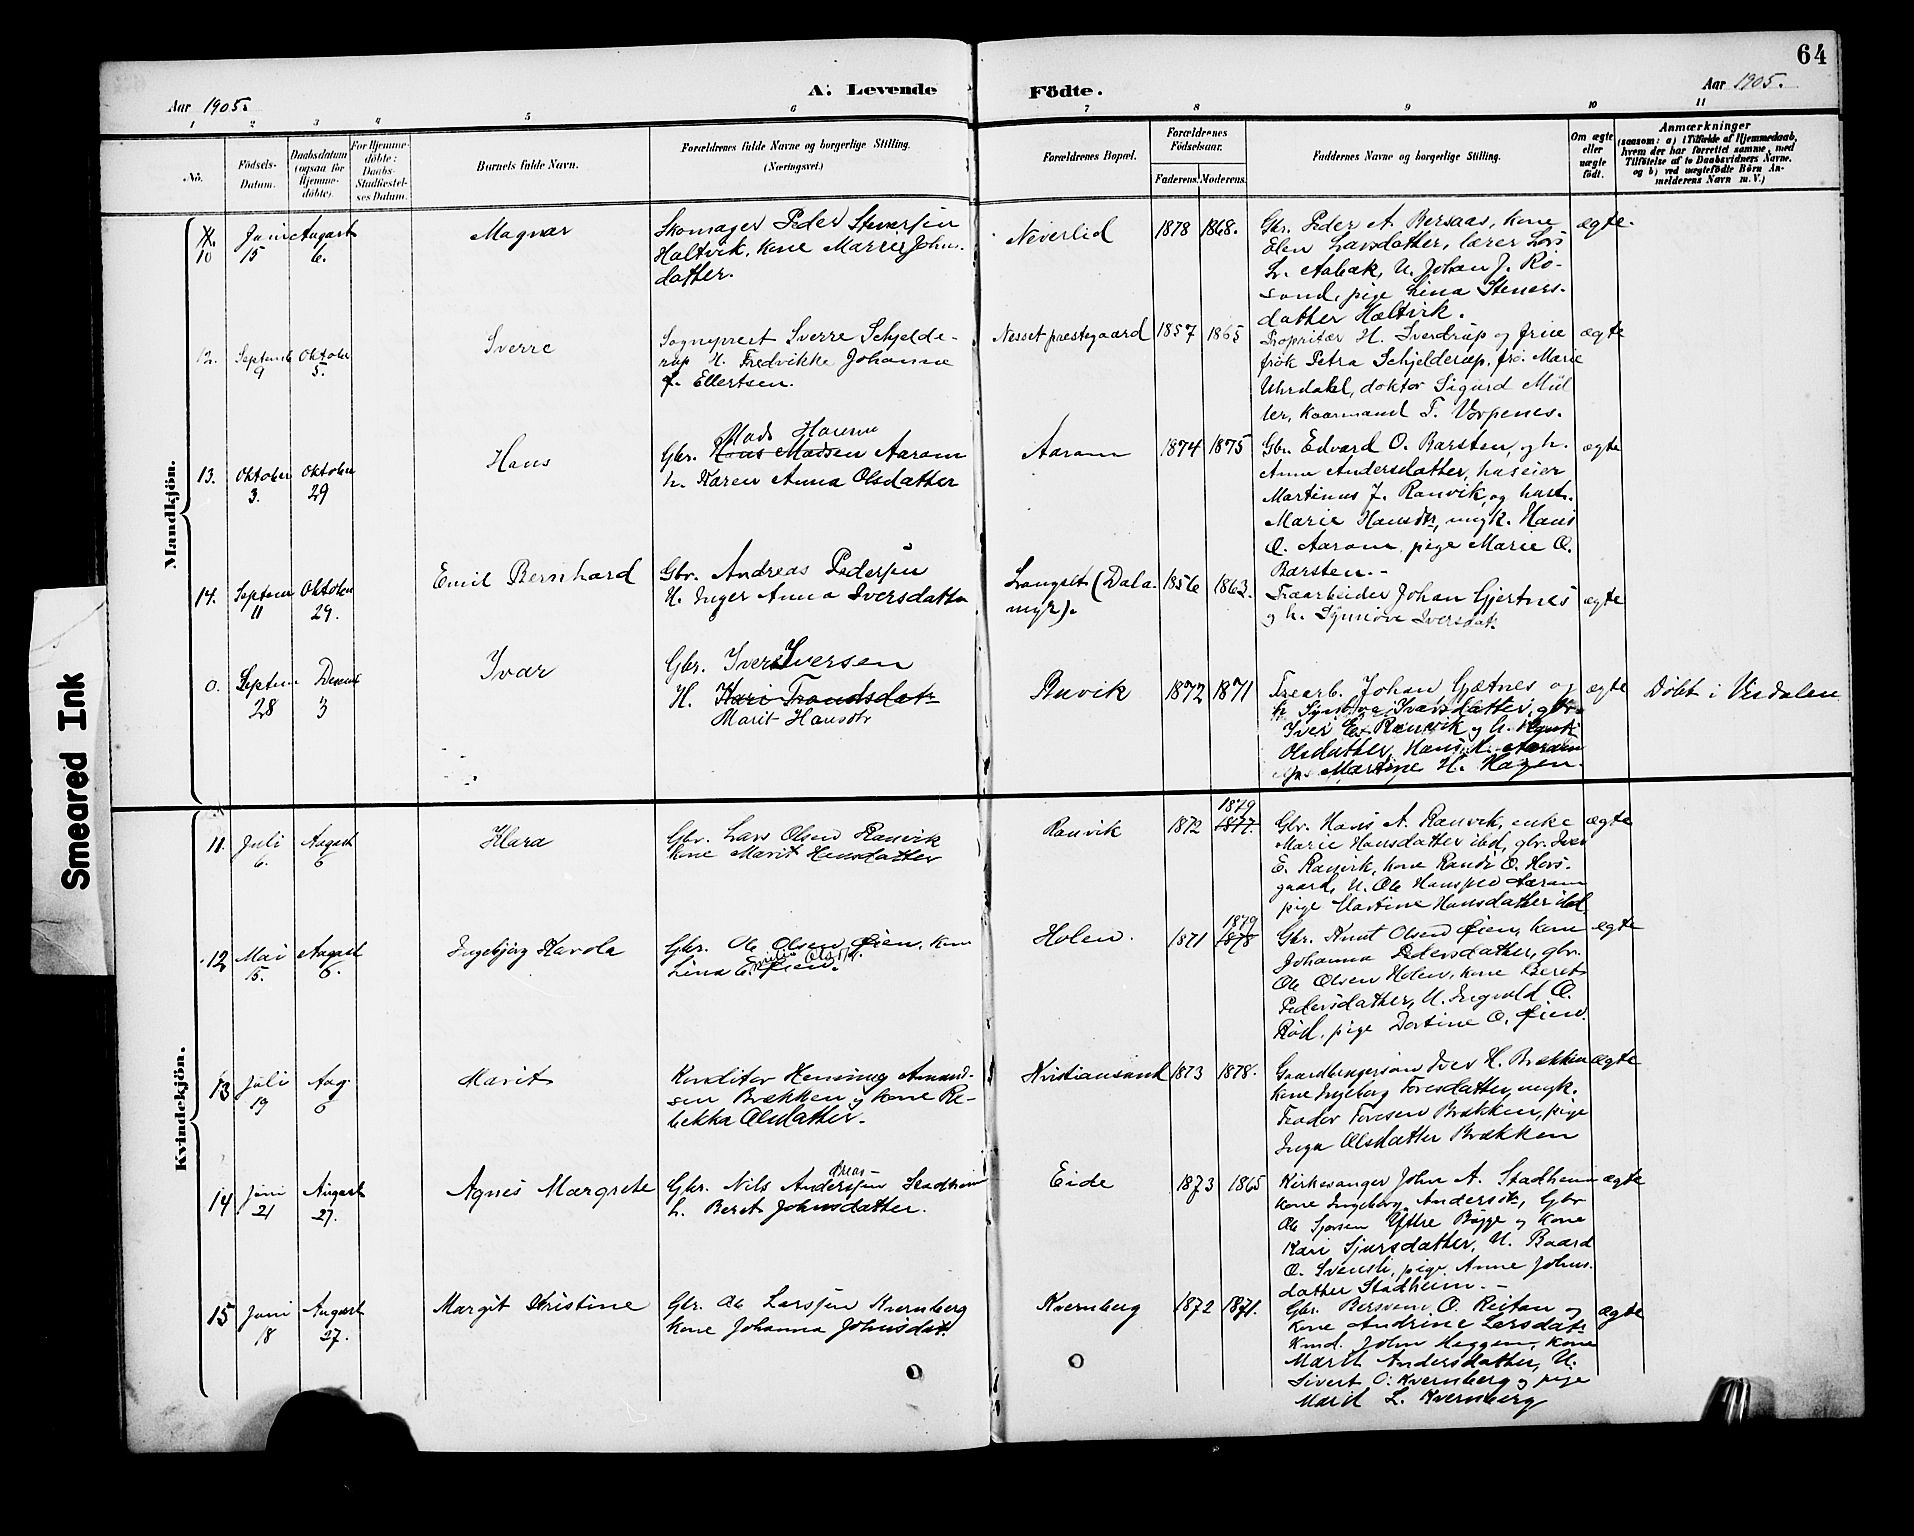 64
Aar 1905.
A. Levende
Födte.
Aar 1905.
1 2 3 4 5 6 7 8 9 10 11
No.
Födsels-
Datum.
Daabsdatum
(ogsaa for
Hjemme-
döbte).
For Hjemme-
döbte:
Daabs-
Stadfæstel-
ses Datum.
Barnets fulde Navn.
Forældrenes fulde Navne og borgerlige Stilling.
(Næringsvei)
Forældrenes Bopæl.
Forældrenes
Födselsaar.
Faderens. Moderens.
Faddernes Navne og borgerlige Stilling.
Om ægte
eller
uægte
født.
Anmærkninger
(saasom: a) i Tilfælde af Hjemmedaab,
hvem der har forrettet samme, med
Tilföielse af to Daabsvidners Navne,
og b) ved uægtefödte Börn An-
melderens Navn m. V.)
Mandkjön.
10
Juni
15
August
6.
Magnar
Skomager Peder Stenersen
Haltvik, kone Marie Johns-
datter.
Neverlid
1878 1868.
Gbr. Peder A. Bersaas, kone
Elen Larsdatter, lærer Lars
Aabak, U. Johan J. Rø-
sand, pige Lina Steners-
datter Haltvik.
ægte.
12.
Septemb
9
Oktober
5.
Sverre
Sognprest Sverre Schjelde-
rup H. Fredrikke Johanne
f. Ellertsen.
Nesset prestegaard
1857 1865
Proprietær H. Sverdrup og frue
frøk Petra Schjelderup, frø. Marie
Uhrdahl, doktor Sigurd Mül-
ler, kaarmand T. Vorpenes.
ægte
13.
Oktober
3.
Oktober
29
Hans
Mads Hansen
Gbr. Hans Madsen Aaram
h. Karen Anna Olsdatter
Aaram
1874 1875
Gbr. Edvard O. Barsten, og h.
Anne Andersdatter, huseier
Martinus J. Ranvik, og hust.
Marie Hansdtr, ungk. Hans
O. Aaram, pige Marie O.
Barsten.-
ægte
14.
Septem
11
Oktober
29.
Emil Bernhard
Gbr. Andreas Pedersen
H. Inger Anna Iversdatter
Langset (Dala-
myr).
1856 1863.
Træarbeider Johan Gjertnes
og h. Synnøve Iversdat.
ægte
0.
Septem
28
Decemb
3
Ivar
Gbr. Iver Iversen
H. Kari Trondsdatr
Marit Hansdtr
Ranvik
1872 1871
Træarb. Johan Gjætnes og
h Synnøve Iversdatter, gbr.
Iver E. Ranvik og h.
Olsdatter, Hans Aaram
Martine H. Hagen.
ægte
Døbt i Visdalen
Kvindekjön.
11.
Juli
6.
August
6
Klara
Gbr. Lars Olsen Ranvik
kone Marit Hansdatter
Ranvik
1872
1879
1877.
Gbr. Hans A. Ranvik, enke
Marie Hansdatter ibd, gbr. Iver
E. Ranvik, kone Randi O. Hers-
gaard, U. Ole Hansen Aaram
pige Martine Hansdatter ibd.
ægte
12
Mai
15.
August
6.
Ingebjørg Karola
Gbr. Ole Olsen Øien, kone
Lina E. Øien.
Holen.
1871
1879
1878
Gbr. Knut Olsen Øien, kone
Johanna Pedersdatter, gbr.
Ole Olsen Holen, kone Beret
Pedersdatter, U. Ingvald O.
Rød, pige Dortine O. Øien.
ægte
13
Juli
19
Aug.
6
Marit
Konditor Henning Amund-
sen Brækken og kone Re-
bekka Olsdatter.
Kristiansund
1873 1878.
Gaardbrugersøn Iver H. Brækken
kone Ingeborg Toresdatter, ungk.
Peder Toresen Brækken, pige
Inga Olsdatter Brækken
ægte
14
Juni
21
August
27.
Agnes Margrete
Gbr. Nils Anderssen Stadheim
h. Beret Johnsdatter.
Eide
1873 1865
Kirkesanger John A. Stadheim
kone Ingeborg Andersdt, Gbr
Ole Sjursen Ytre Bugge og kone
Kari Sjursdatter, U. Baard
O. Svensli, pige. Anne Johns-
datter Stadheim.-
ægte
15
Juni
18
August
27.
Margit Kristine
Gbr. Ole Larssen Kvernberg
kone Johanna Johnsdat.
Kvernberg
1872 1871.
Gbr. Bersvend O. Reitan og
kone Andrine Larsdatr
Kmd. John Heggem, kone
Marit Andersdatter, U.
Sivert O. Kvernberg og pige
Marit L. Kvernberg
ægte
Smeared Ink